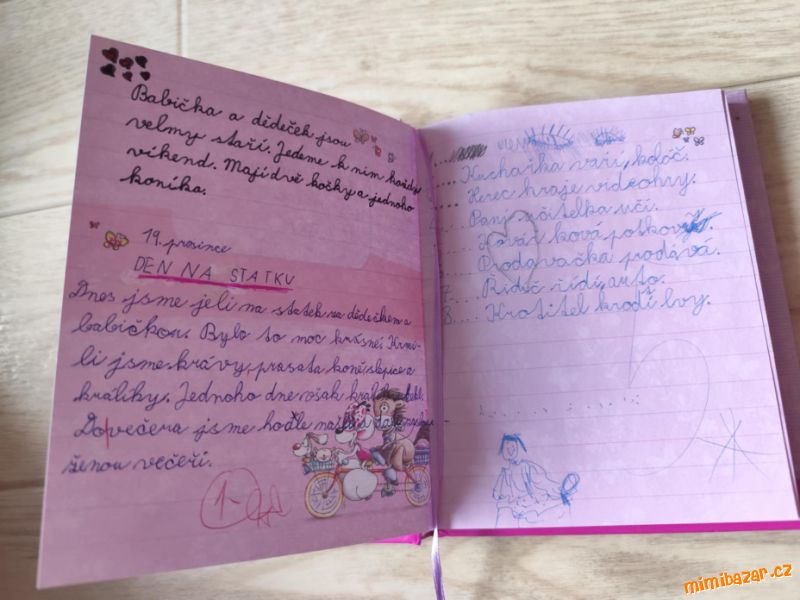 Babička a dědeček jsou
velmy staří. Jedeme k nim každý
víkend. Mají dvě kočky a jednoho
koníka.
19. prosince
DEN NA STATKU
Dnes jsme jeli na statek za dědečkem a
babičkou. Bylo to moc krásné. Krmi-
li jsme krávy, prasata koně, slepice a
králíky. Jednoho dne však králík utekl.
Dovečera jsme ho
ženou večeří.
1-
Kuchařka vaří, koláč.
Herec hraje videohry.
Paní učitelka učí.
Kovář ková potkovy.
Prodavačka prodává.
7.... Řidič řídí, auto.
8.... Krotitel krotí lvy.
mimibazar.cz